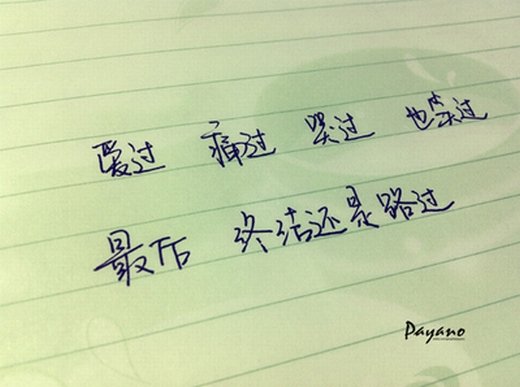 爱过 痛过 哭过 也笑过
最后 终结还是路过
Payano